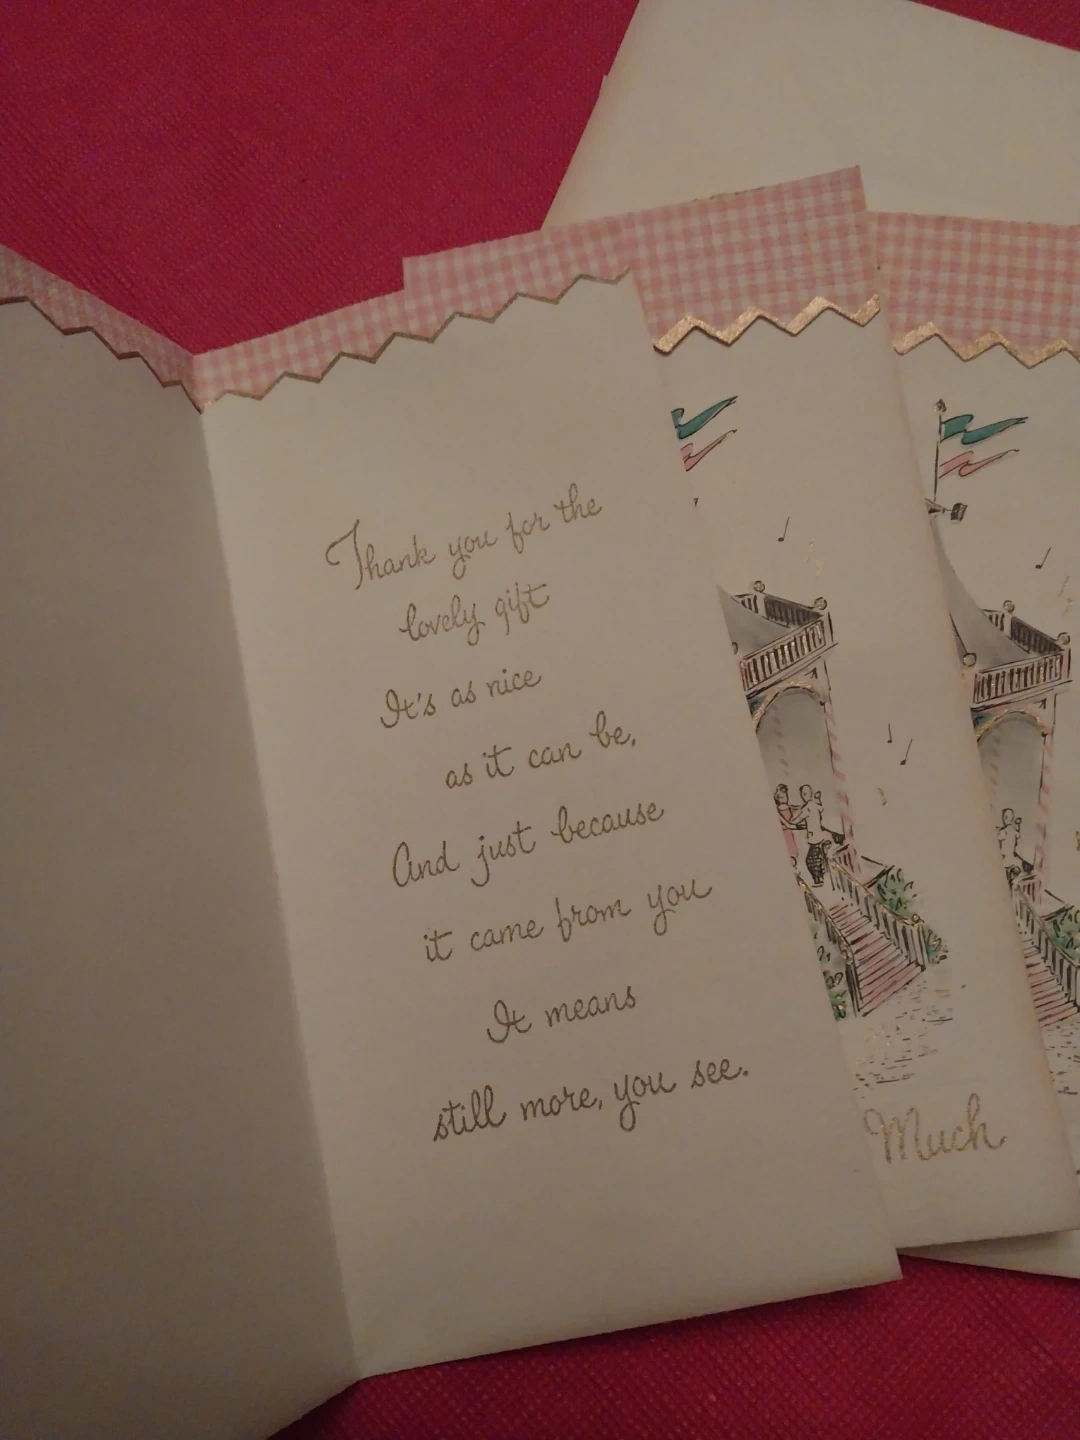 Thank you for the
lovely gift
It's as nice
as it can be,
And just because
it came from you
It means
still more, you see.
Much